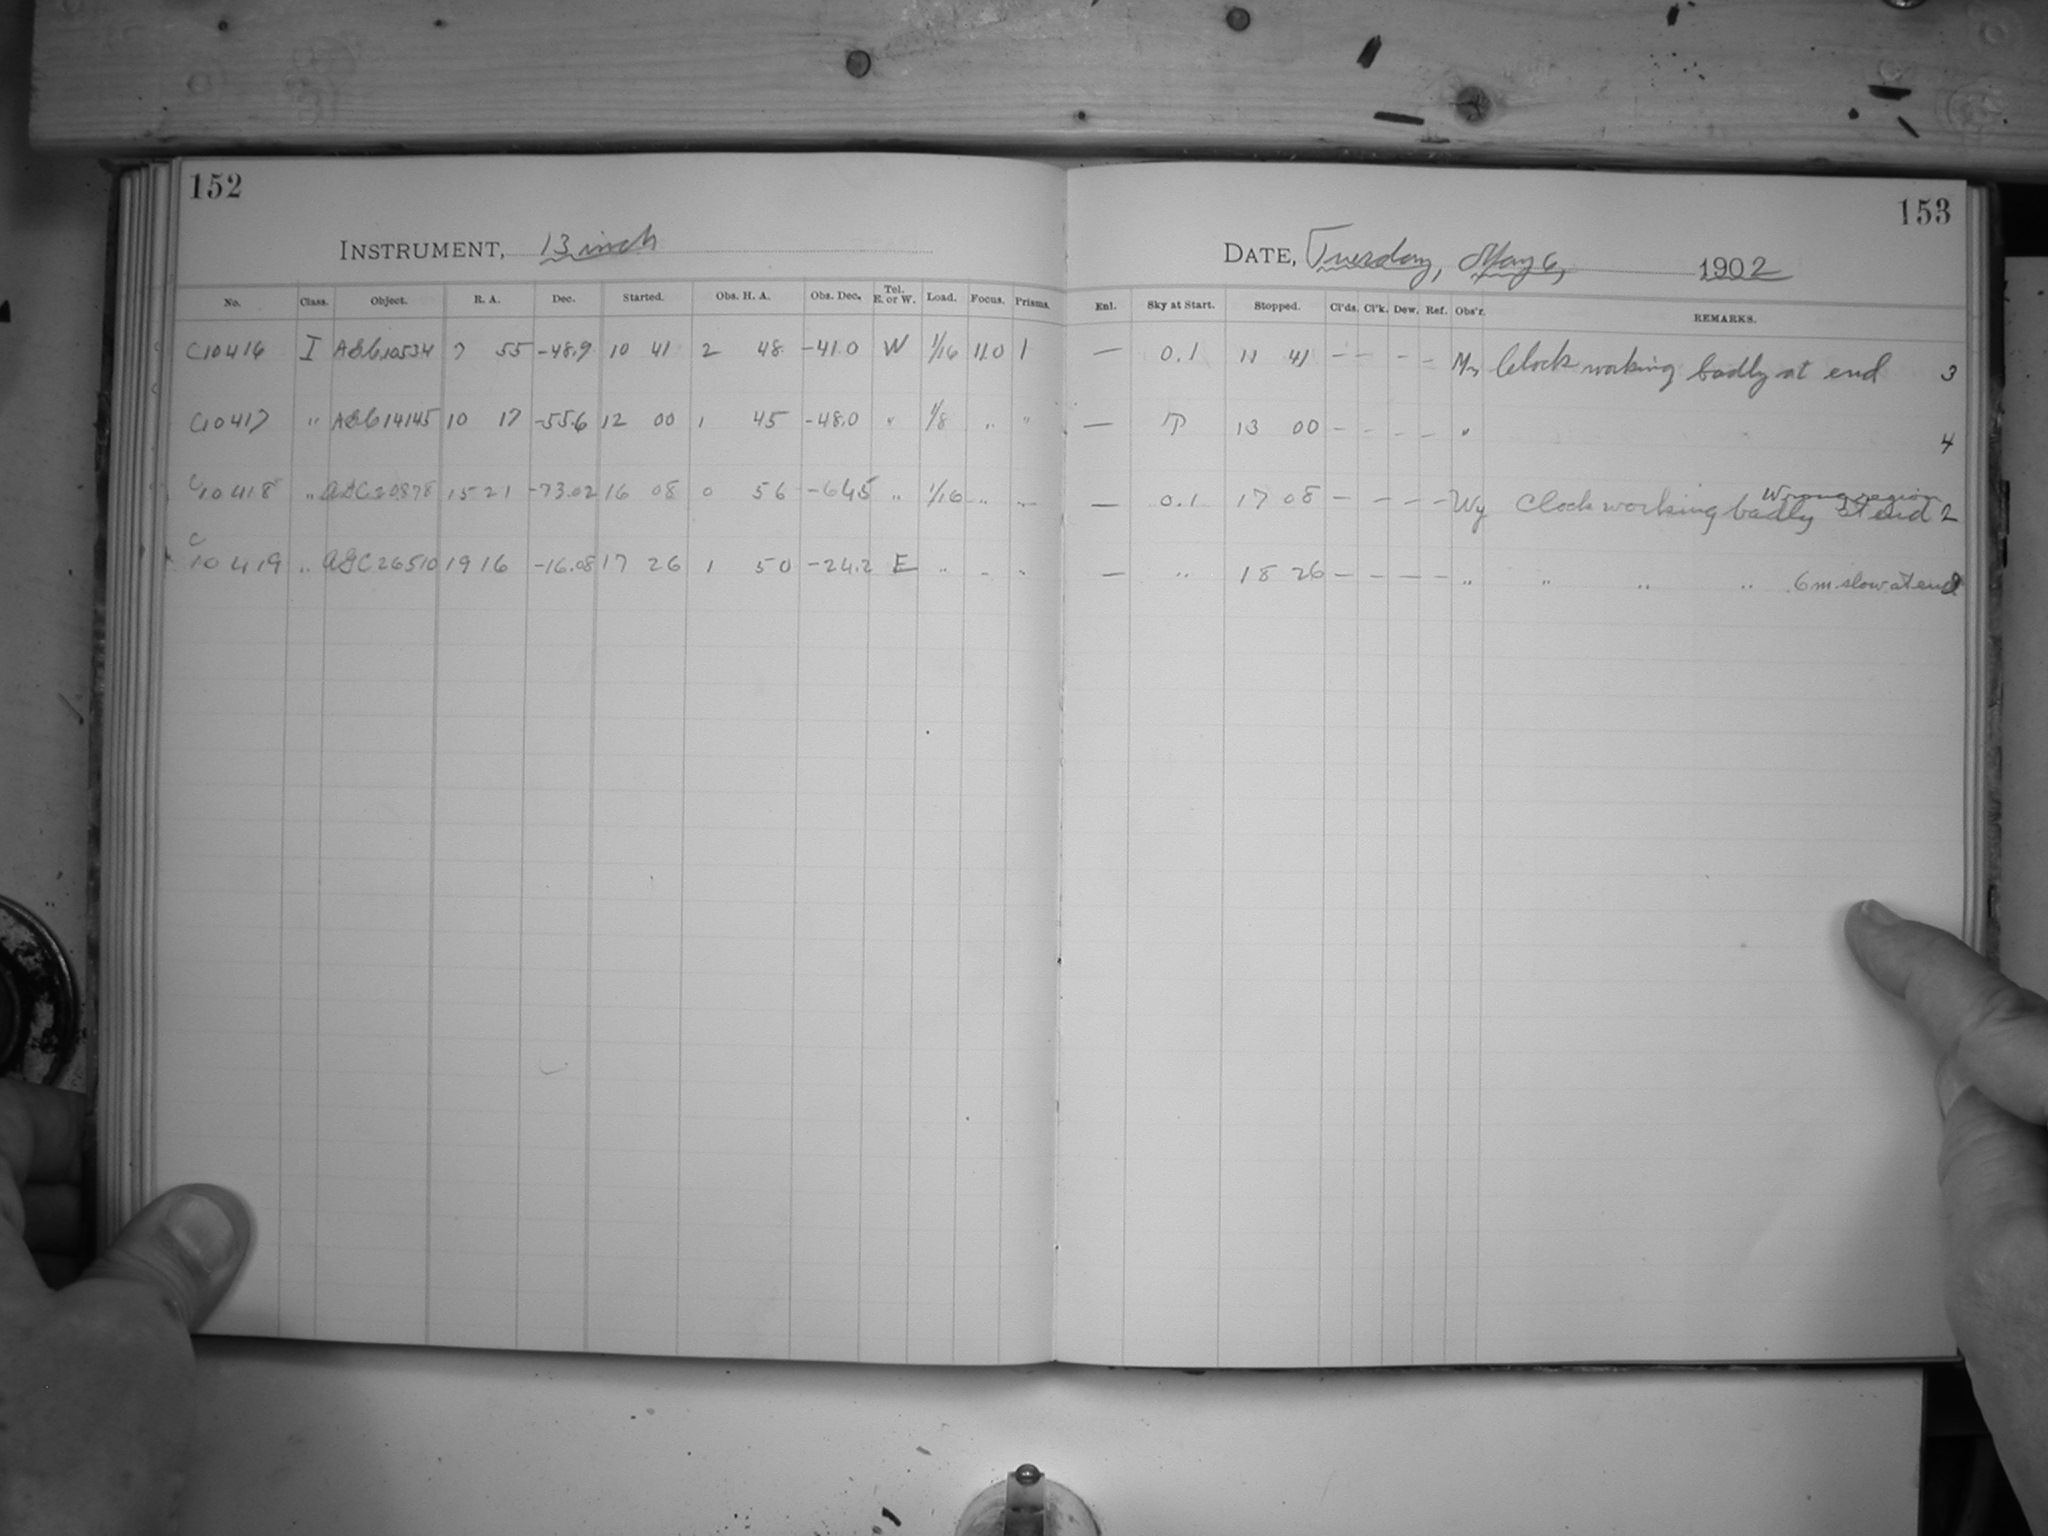 152
INSTRUMENT, 13 inch
No. Class. Object. R. A. Dec. Started. Obs. H. A. Obs. Dec. Tel. E. or W. Load. Focus. Prisms.
C10416 I AGC10534 7 55 -48.9 10 41 2 48 -41.0 W 1/16 11.0 1
C10417 " AGC14145 10 17 -55.6 12 00 1 45 -48.0 " 1/8 " "
C10418 " AGC20878 15 21 -73.02 16 08 0 56 -64.5 " 1/16 " "
C10419 " AGC26510 19 16 -16.08 17 26 1 50 -24.2 E " " "
153
DATE, Tuesday, May 6, 1902
Enl. Sky at Start. Stopped. Cl'ds. Cl'k. Dew. Ref. Obs'r. REMARKS.
— 0.1 11 41 — — — — Clock working badly at end 3
— 13 00 — — — — " 4
Wrong region
— 0.1 17 08 — — — — Wy Clock working badly at end 2
— " 18 26 — — — — " " " " 6m slow at end